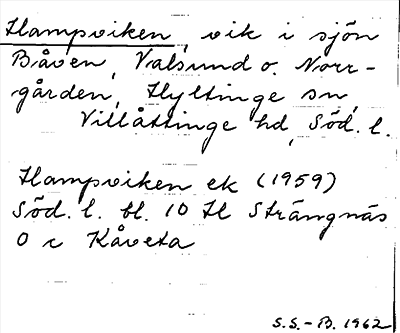 Hampviken, vik i sjön
Båven, Valsund o. Norr-
gården, Hyltinge sn,
Villåttinge hd, Söd. l.
Hampviken ek (1959)
Söd. l. bl. 10 H Strängnäs
O c Kåveta
S.S.-B. 1962